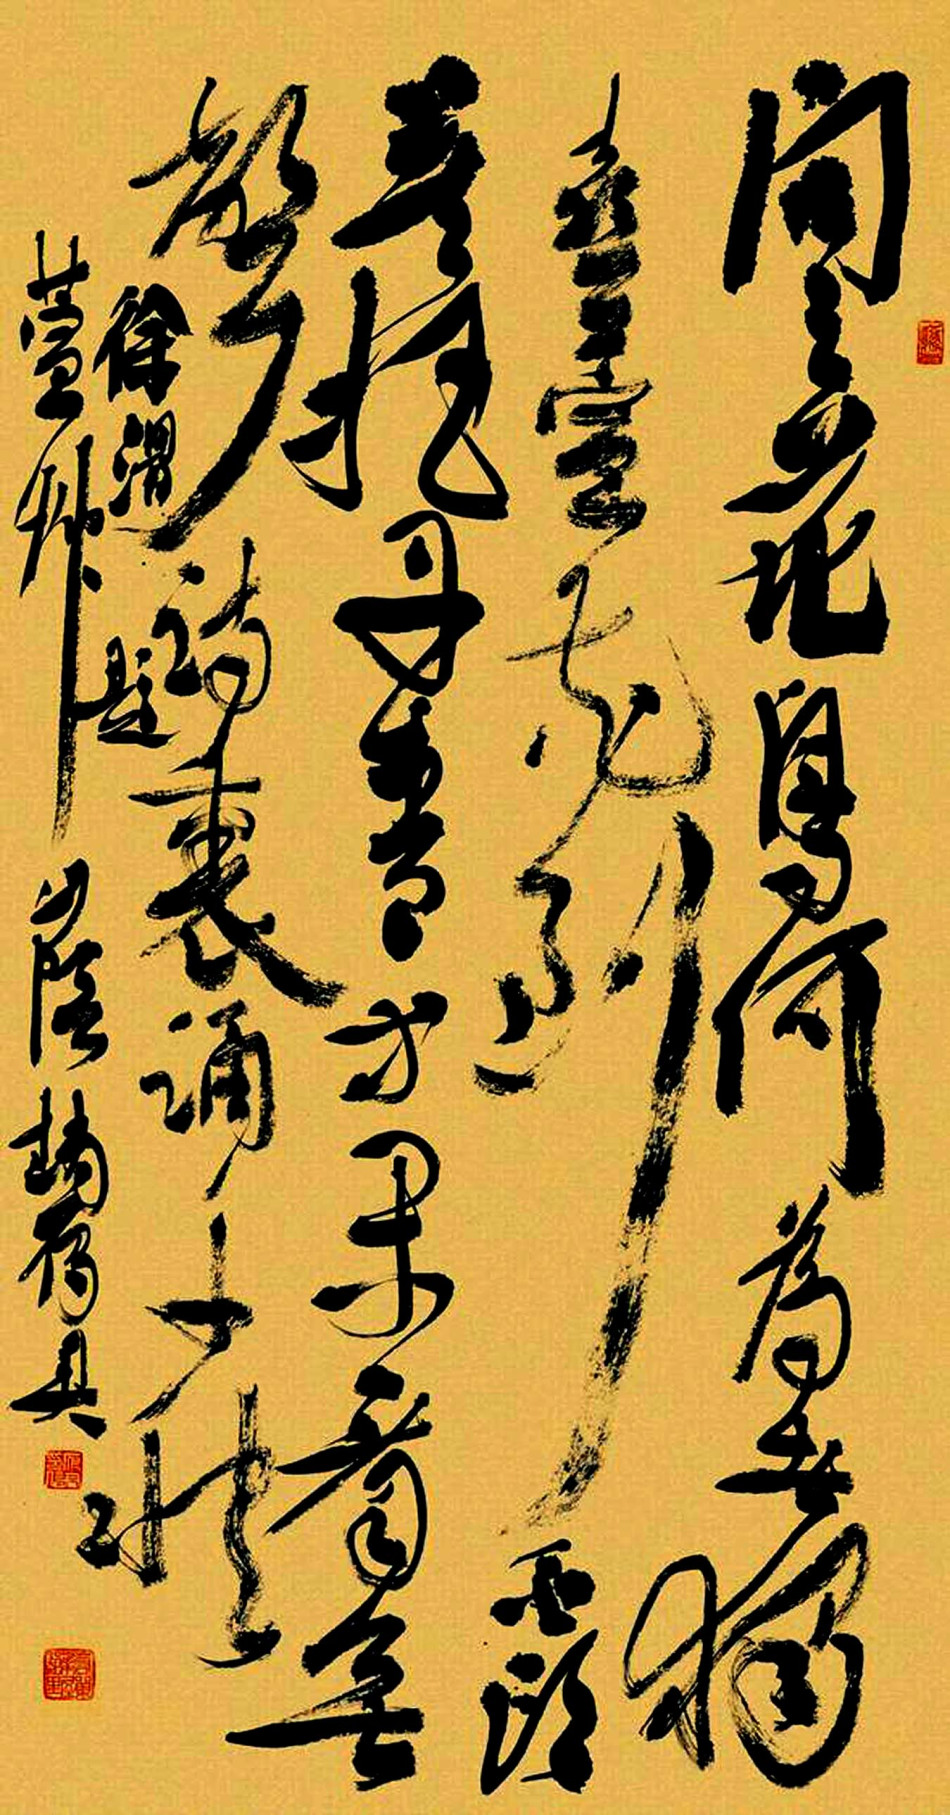 問之花鳥何為者獨
喜萱花到白頭
莫把丹青等閒看無
聲詩裏誦千秋
徐渭題
萱艸 山陰